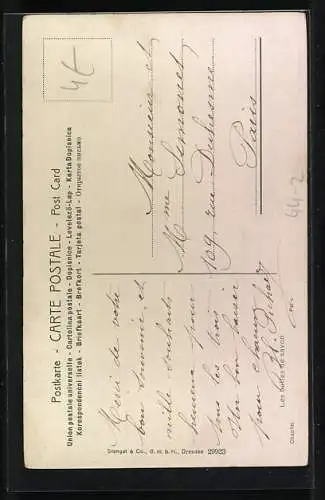 4€
Postkarte - CARTE POSTALE - Post Card
Union postale universelle - Cartolina postale - Dopisnice - Levelező-Lap - Karta Dopisnica
Korespondenční lístek - Briefkaart - Brefkort - Tarjeta postal - Открытое письмо
Monsieur et
Mme Simonet
109, rue Duhesme
Paris
44-2
Merci de votre
bon souvenir et
mille souhaits
pour
tous les trois
Un bon baiser
pour chacun
Les bulles de savon
Chaplin
Stengel & Co., G. m. b. H., Dresden 29923